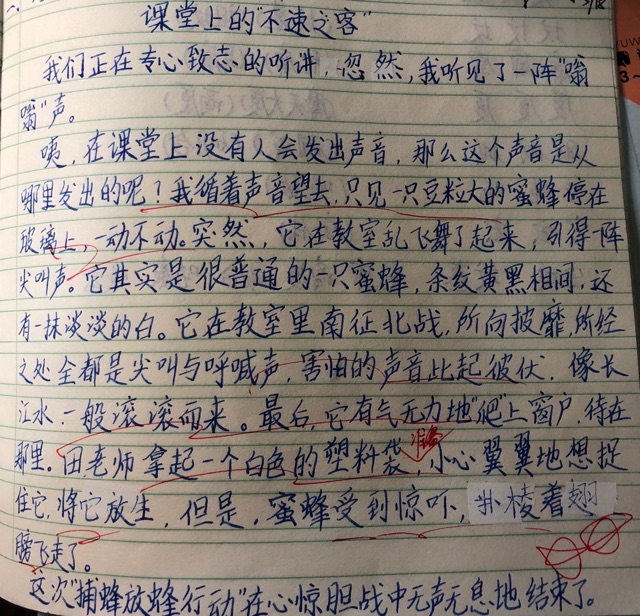 课堂上的"不速之客"
我们正在专心致志的听讲，忽然，我听见了一阵"嗡
嗡"声。
咦，在课堂上没有人会发出声音，那么这个声音是从
哪里发出的呢！我循着声音望去，只见一只豆粒大的蜜蜂停在
玻璃上，一动不动。突然，它在教室乱飞舞了起来，引得一阵
尖叫声。它其实是很普通的一只蜜蜂，条纹黄黑相间，还
有一抹淡淡的白。它在教室里南征北战，所向披靡，所经
之处全都是尖叫与呼喊声，害怕的声音此起彼伏，像长
江水一般滚滚而来。最后，它有气无力地"爬"上窗户，待在
那里。田老师拿起一个白色的塑料袋，准备小心翼翼地想捉
住它，将它放生，但是，蜜蜂受到惊吓，扑棱着翅
膀飞走了。
这次"捕蜂放蜂行动"在心惊胆战中无声无息地结束了。